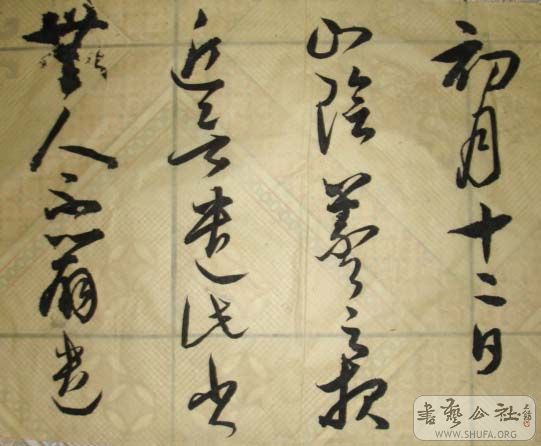 初月十二日
山陰羲之報
近欲遣此書
無人不辦遣
書藝公社
WWW.SHUFA.ORG